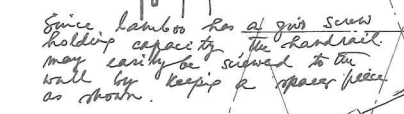 Since bamboo has a good screw
holding capacity the handrail
may easily be screwed to the
wall by keeping a spacer piece
as shown.